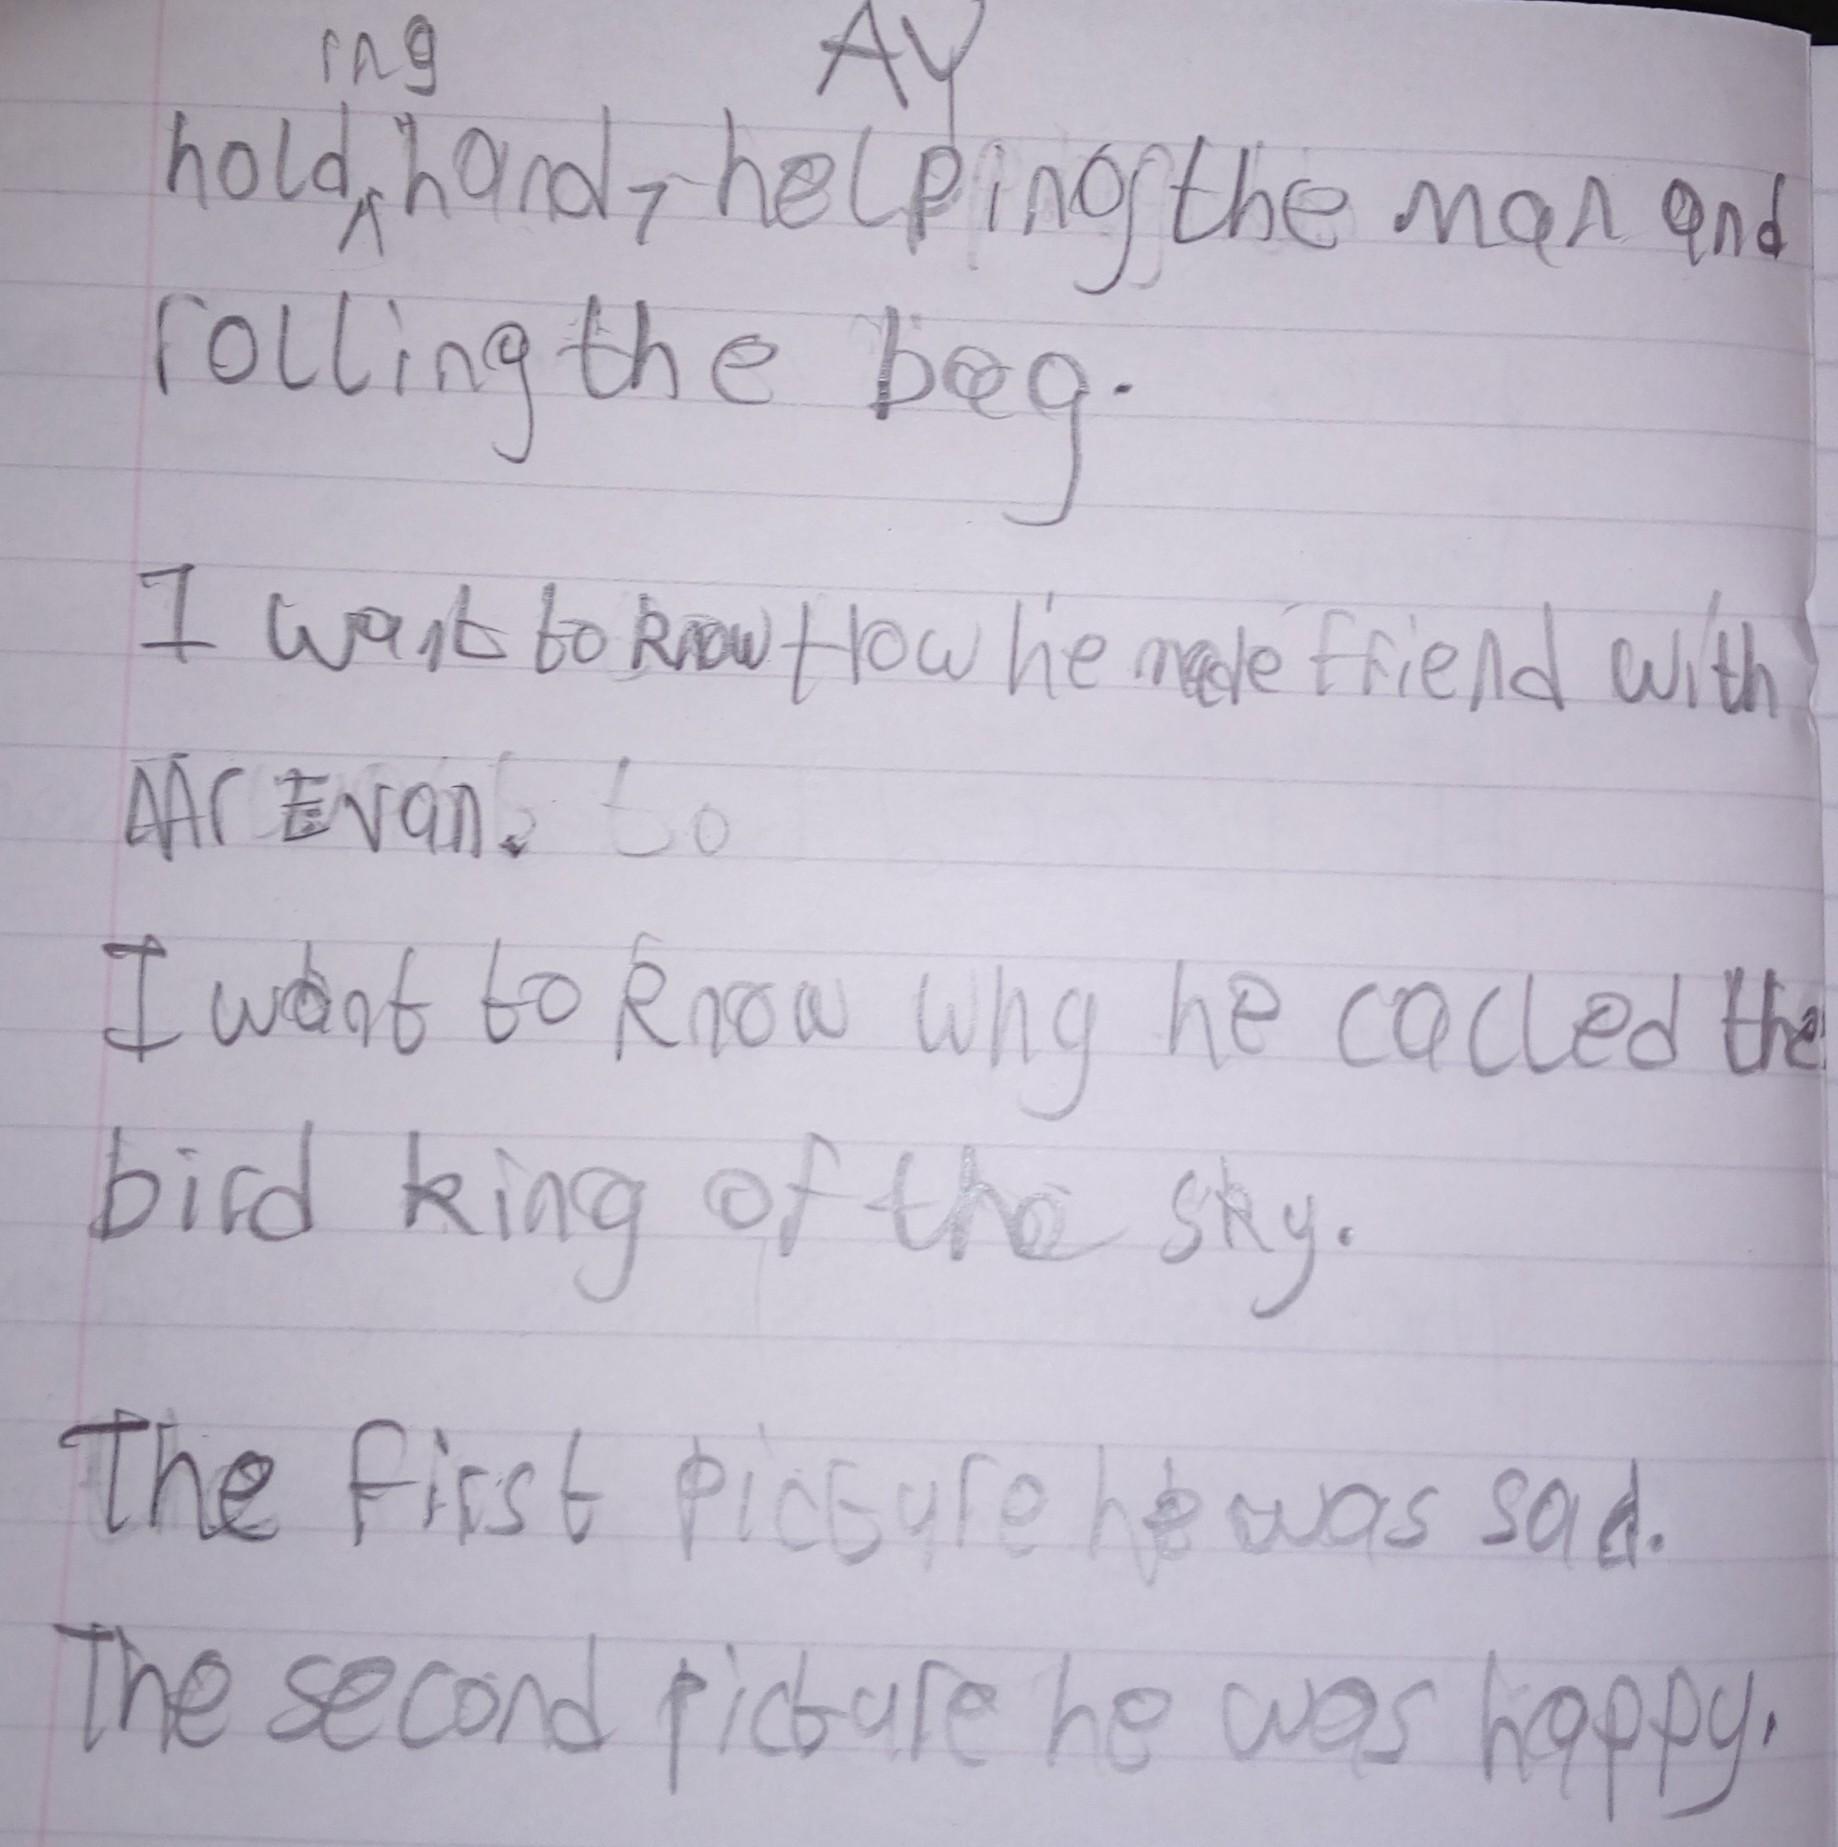 ing AY
hold^hand, helping the man and
rolling the bag.
I want to know How he made friend with
Mr Evan. to
I want to know why he called the
bird king of the sky.
The first picture he was sad.
The second picture he was happy.